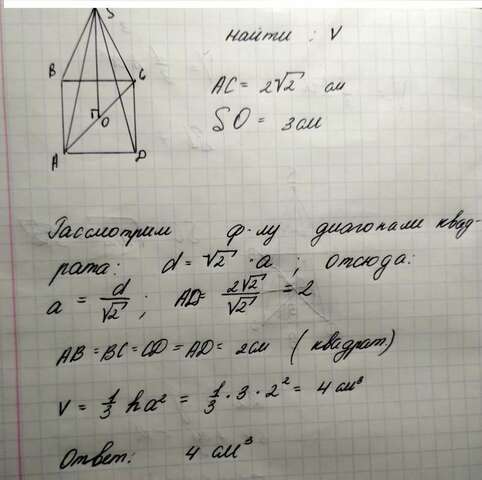 S
найти : V
B C
AC = 2√2 см
SO = 3см
O
A D
Рассмотрим ф-лу диагонали квад-
рата: d = √2 · a ; отсюда:
a = d/√2 ; AD = 2√2/√2 = 2
AB = BC = CD = AD = 2см (квадрат)
V = 1/3 ha² = 1/3 · 3 · 2² = 4 см³
Ответ: 4 см³